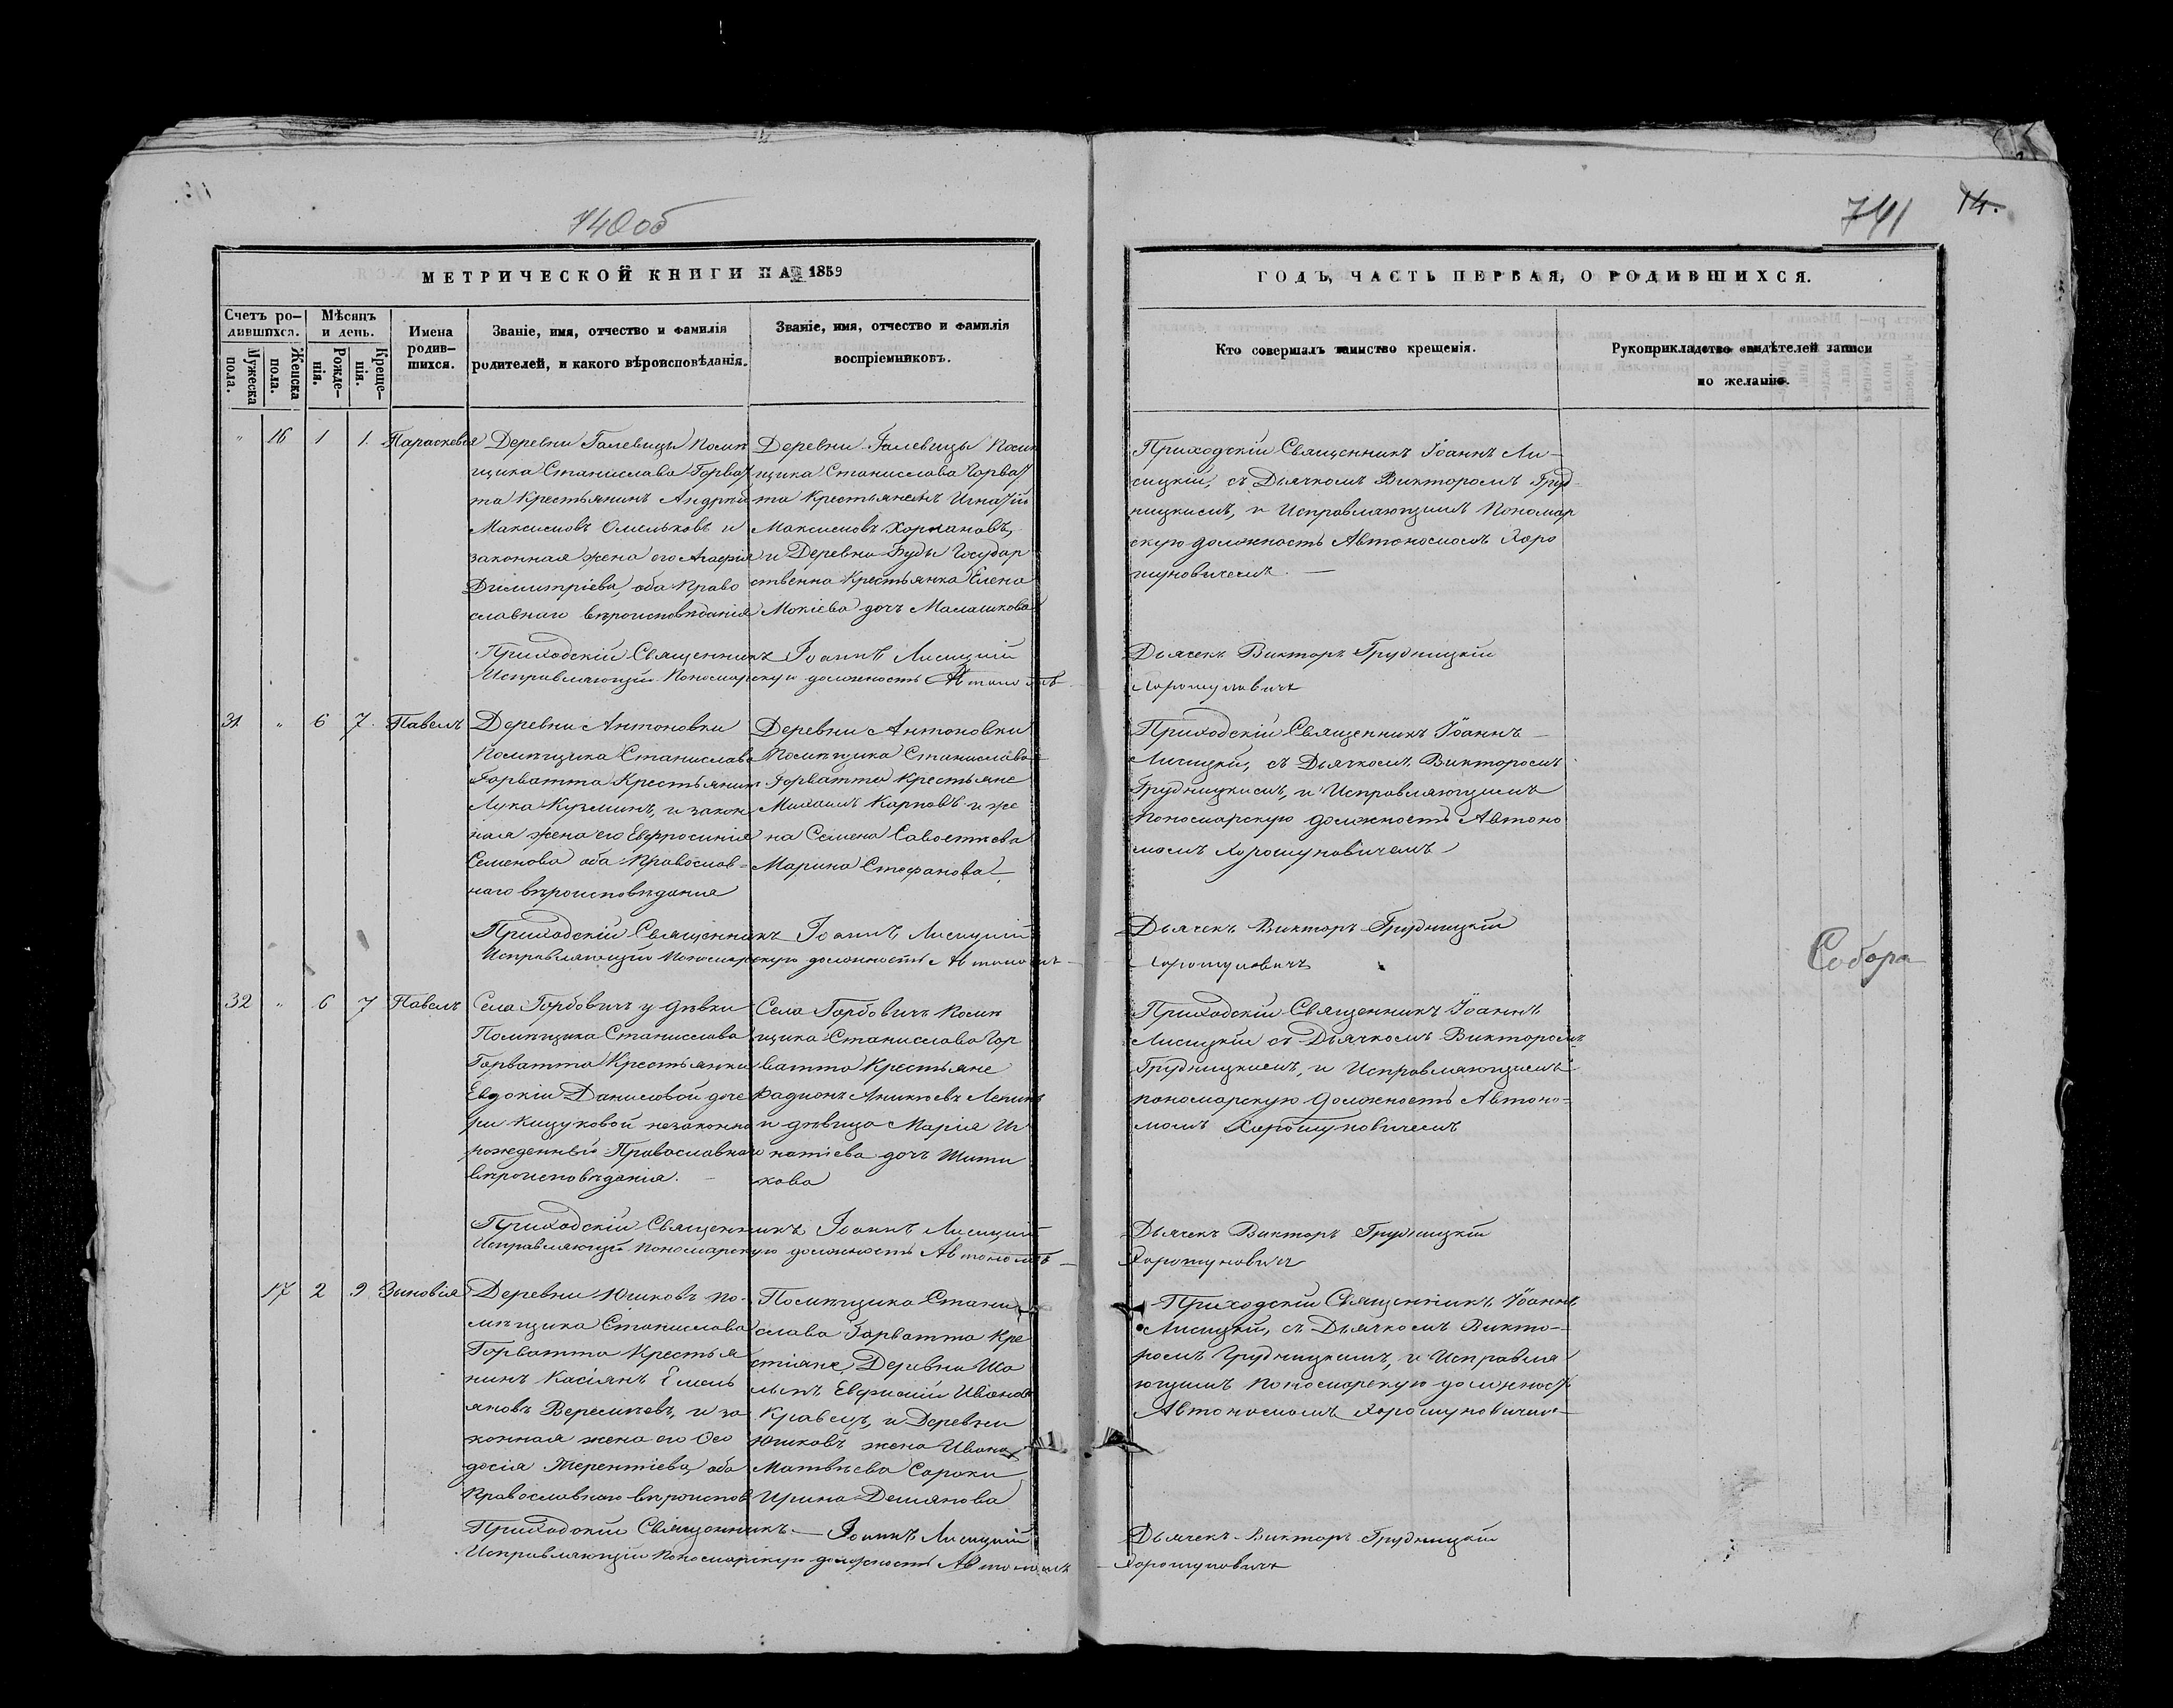 740об
МЕТРИЧЕСКОЙ КНИГИ НА 1859
Счетъ ро-
дившихся.
Мужеска
пола.
Женска
пола.
Мѣсяцъ
и день.
Рожде-
нія.
Креще-
нія.
Имена
родив-
шихся.
Званіе, имя, отчество и фамилія
родителей, и какого вѣроисповѣданія.
Званіе, имя, отчество и фамилія
воспріемниковъ.
" 16 1 1. Параскевія
Деревни Галевицы Помѣ
щика Станислава Горва
та Крестьянинъ Андрей
Максимовъ Омельковъ и
законная жена его Агафія
Димитріева, оба Право
славнаго вѣроисповѣданія
Деревни Галевицы Помѣ
щика Станислава Горва
та Крестьянинъ Игнатій
Максимовъ Хормановъ,
и Деревни Буды Государ
ственна Крестьянка Елена
Мокіева дочь Малашкова
Приходскій Священникъ Іоаннъ Лисицкій
Исправляющій Пономарскую должность Автономъ
31 " 6 7. Павелъ
Деревни Антоновки
Помѣщика Станислава
Горватта Крестьянинъ
Лука Кузминъ, и закон
ная жена его Евфросинія
Семенова оба Православ=
наго вѣроисповѣданія
Деревни Антоновки
Помѣщика Станислава
Горватта Крестьяне
Михаилъ Карповъ и же
на Семена Савостѣева
Марина Стефанова
Приходскій Священникъ Іоаннъ Лисицкій
Исправляющій Пономарскую должность Автономъ
32 " 6 7 Павелъ
Села Горбовичъ у дѣвки
Помѣщика Станислава
Горватта Крестьянки
Евдокіи Даниловой доче
ри Кицуковой незаконно
рожденный Православнаго
вѣроисповѣданія.
Села Горбовичъ Помѣ
щика Станислава Гор
ватта Крестьяне
Радионъ Аникіевъ Лепинъ
и дѣвица Марія Иг
натіева дочь Шити
кова
Приходскій Священникъ Іоаннъ Лисицкій
Исправляющій пономарскую должность Автономъ
17 2 9 Зиновія
Деревни Юшковъ по-
мѣщика Станислава
Горватта Крестья
нинъ Касіянъ Емель
яновъ Веремѣевъ, и за
конная жена его Фео
досія Терентіева, оба
Православнаго вѣроиспов
Помѣщика Стани
слава Горватта Кре
стіяне, Деревни Ша
Евфимій Ивановъ
Кравецъ, и Деревни
Юшковъ жена Ивана
Матвѣева Сороки
Ирина Демянова
Приходскій Священникъ Іоаннъ Лисицкій
Исправляющій пономарскую должность Автономъ
741 14.
ГОДЪ, ЧАСТЬ ПЕРВАЯ, О РОДИВШИХСЯ.
Кто совершалъ таинство крещенія.
Рукоприкладство свидѣтелей записи
по желанію.
Приходскій Священникъ Іоаннъ Ли-
сицкій, съ Дьячкомъ Викторомъ Груд
ницкимъ, и Исправляющимъ Пономар
скую должность Автономомъ Хоро
шуновичемъ.
Дьячекъ Викторъ Грудницкій
Хорошуновичъ
Приходскій Священникъ Іоаннъ
Лисицкій, съ Дьячкомъ Викторомъ
Грудницкимъ, и Исправляющимъ
Пономарскую должность Автоно
момъ Хорошуновичемъ
Дьячекъ Викторъ Грудницкій
Хорошуновичъ
Собора
Приходскій Священникъ Іоаннъ
Лисицкій съ Дьячкомъ Викторомъ
Грудницкимъ, и Исправляющимъ
пономарскую должность Автоно=
момъ Хорошуновичемъ
Дьячекъ Викторъ Грудницкій
Хорошуновичъ
Приходскій Священникъ Іоаннъ
Лисицкій, съ Дьячкомъ Викто-
ромъ Грудницкимъ, и Исправля
ющимъ пономарскую должность
Автономомъ Хорошуновичемъ
Дьячекъ Викторъ Грудницкій
Хорошуновичъ